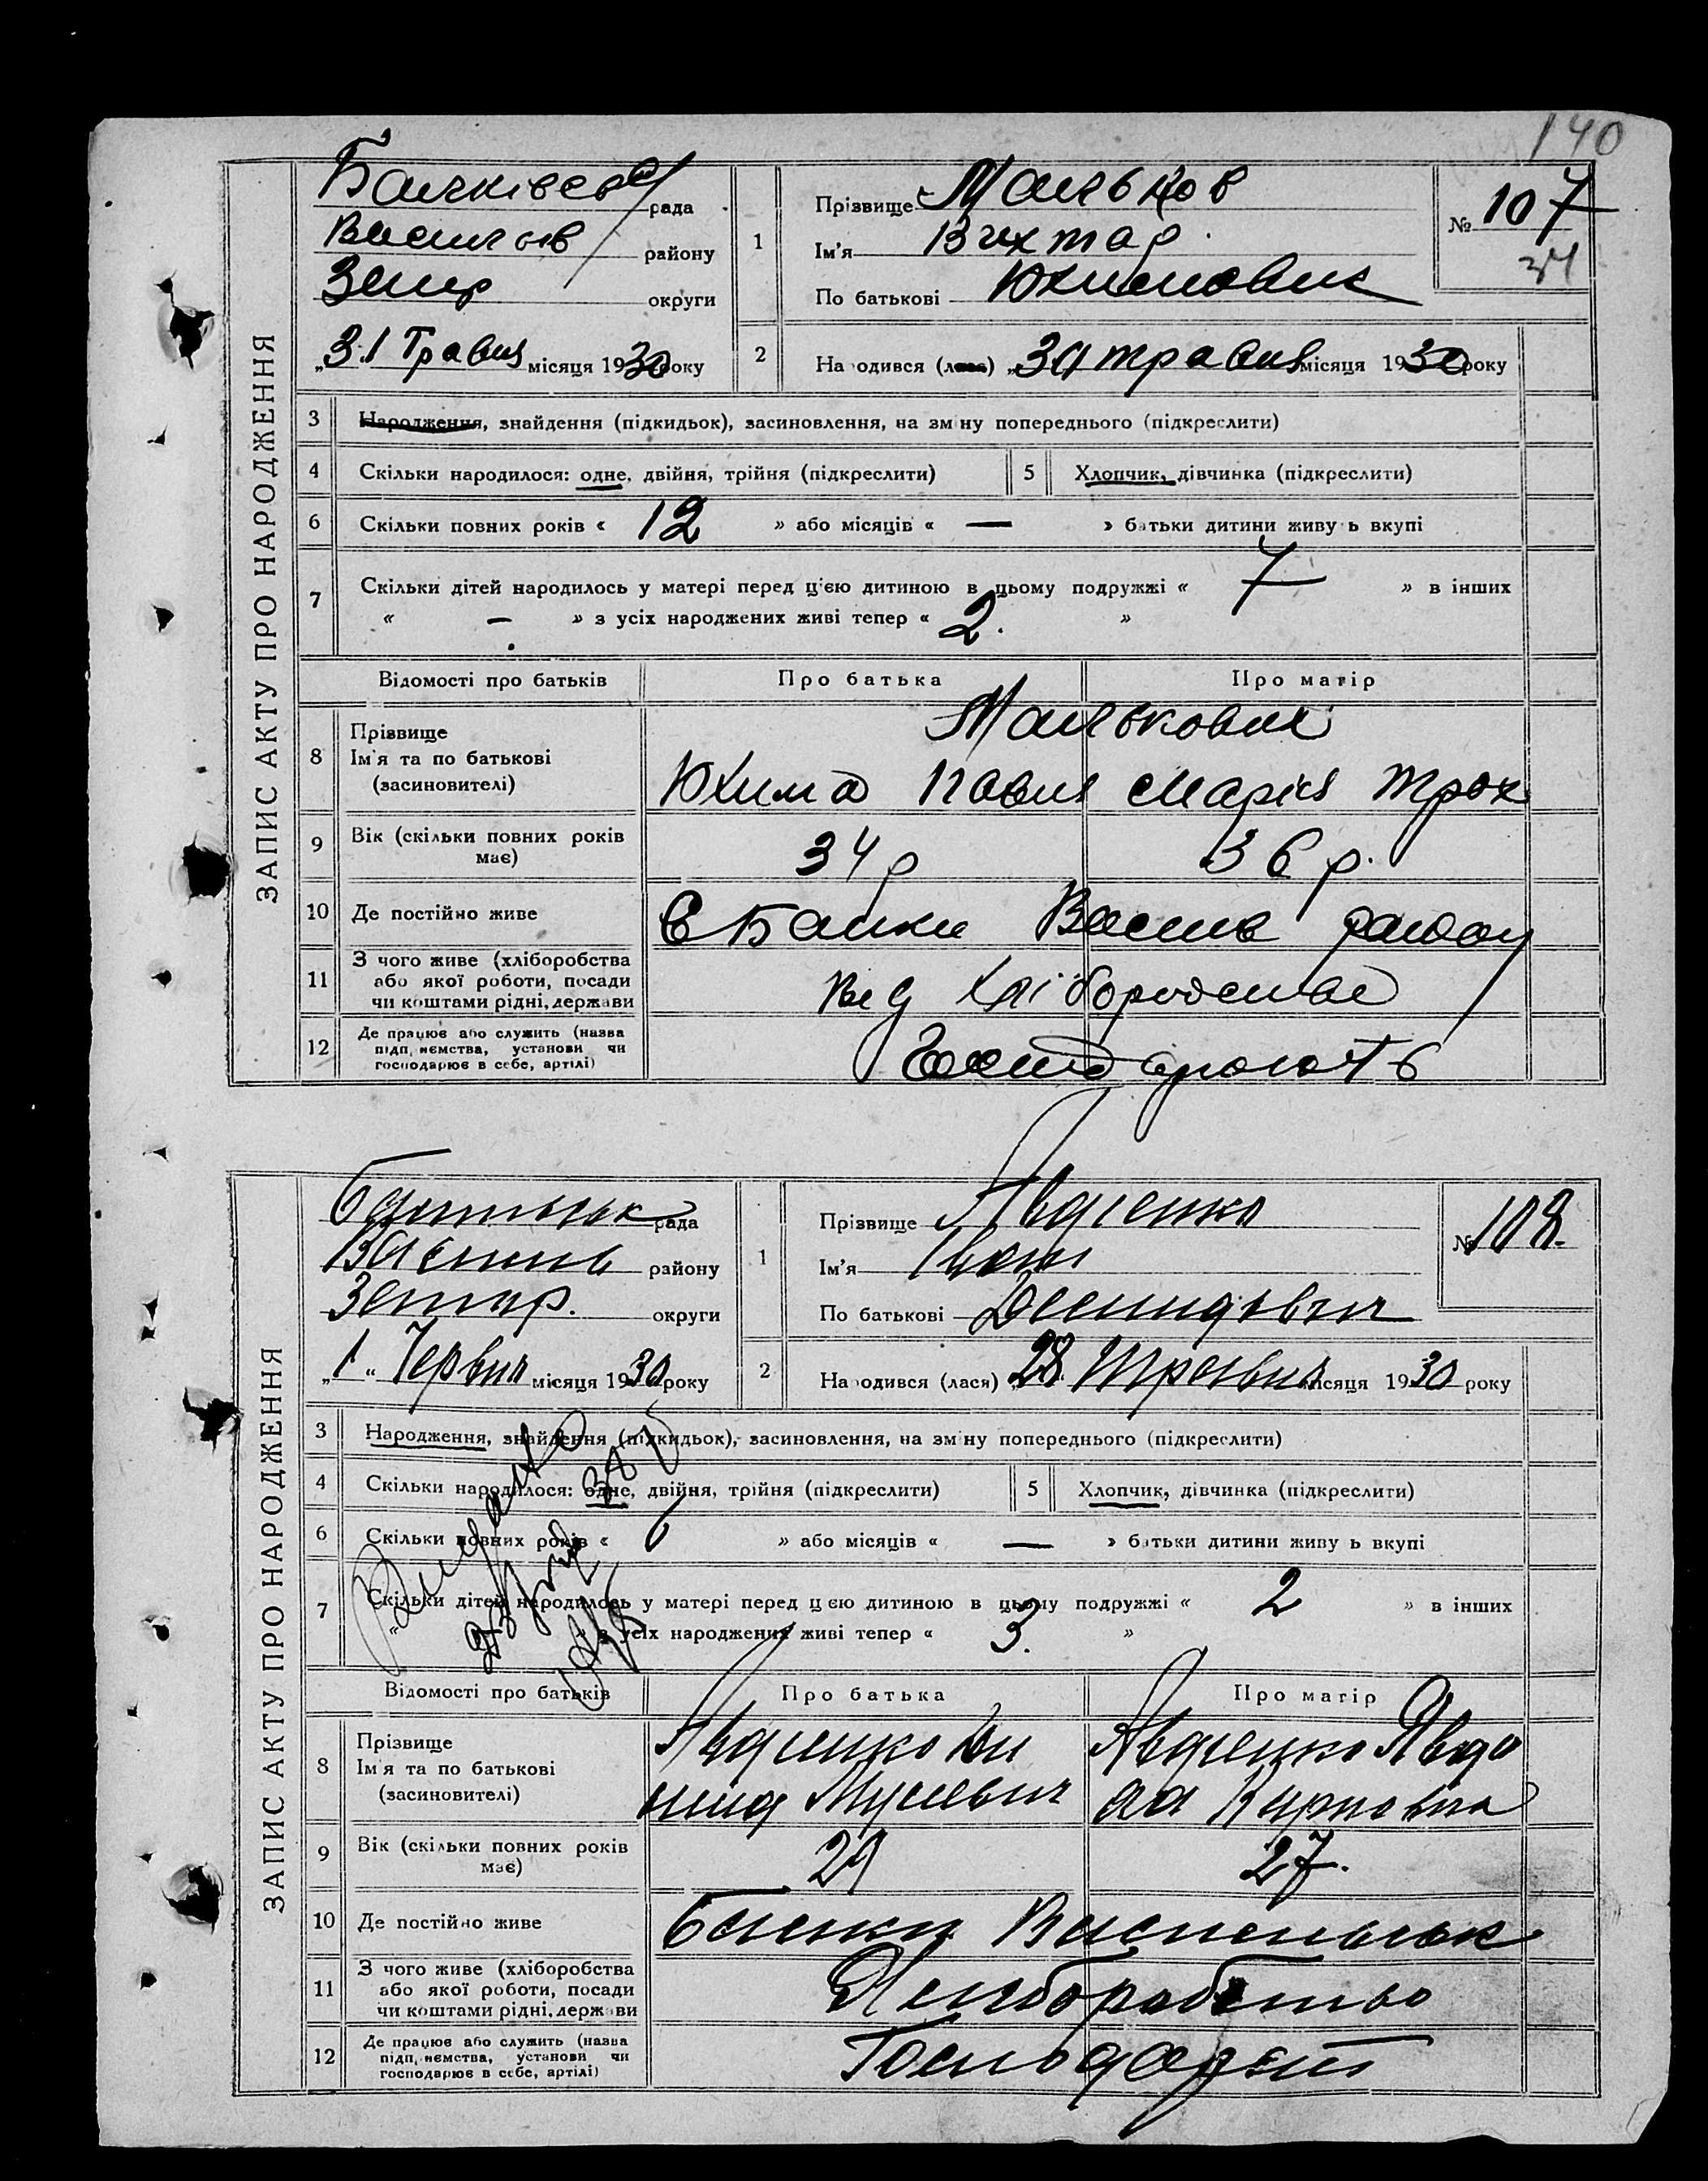 140
ЗАПИС АКТУ ПРО НАРОДЖЕННЯ
Балчківськ рада
Васильов району
Запор округи
„31 Травня місяця 1930 року
1 Прізвище Мальков
Ім'я Вихтар
По батькові Юхимович
№ 107
34
2 Народився (лась) „30 травня місяця 1930 року
3 Народження, знайдення (підкидьок), засиновлення, на зміну попереднього (підкреслити)
4 Скільки народилося: одне, двійня, трійня (підкреслити)
5 Хлопчик, дівчинка (підкреслити)
6 Скільки повних років « 12 » або місяців « — » батьки дитини живуть вкупі
7 Скільки дітей народилось у матері перед цією дитиною в цьому подружжі « 7 » в інших
« – » з усіх народжених живі тепер « 2. »
Відомості про батьків Про батька Про матір
8 Прізвище
Ім'я та по батькові
(засиновителі)
Малькових
Юхима Павля Марія Трох
9 Вік (скільки повних років має) 34 р 36 р.
10 Де постійно живе
с Балки Васил району
11 З чого живе (хліборобства
або якої роботи, посади
чи коштами рідні, держави
від хліборобства
12 Де працює або служить (назва
підприємства, установи чи
господарює в себе, артілі)
Господарюють
ЗАПИС АКТУ ПРО НАРОДЖЕННЯ
рада
Василів району
Запор. округи
„1“ Червня місяця 1930 року
1 Прізвище Авдієнко
Ім'я Іван
По батькові Демидович
№ 108.
2 Народився (лася) „28. Травня місяця 1930 року
3 Народження, знайдення (підкидьок), засиновлення, на зміну попереднього (підкреслити)
4 Скільки народилося: одне, двійня, трійня (підкреслити)
5 Хлопчик, дівчинка (підкреслити)
6 Скільки повних років « 6 » або місяців « — » батьки дитини живуть вкупі
7 Скільки дітей народилось у матері перед цією дитиною в цьому подружжі « 2 » в інших
« » з усіх народжених живі тепер « 3. »
Відомості про батьків Про батька Про матір
8 Прізвище
Ім'я та по батькові
(засиновителі)
Авдієнко Авдієнко Явдо
Мусієвич ха Карповна
9 Вік (скільки повних років має) 29 27.
10 Де постійно живе
Балки Васильвськ
11 З чого живе (хліборобства
або якої роботи, посади
чи коштами рідні, держави
Хлиборобство
12 Де працює або служить (назва
підприємства, установи чи
господарює в себе, артілі)